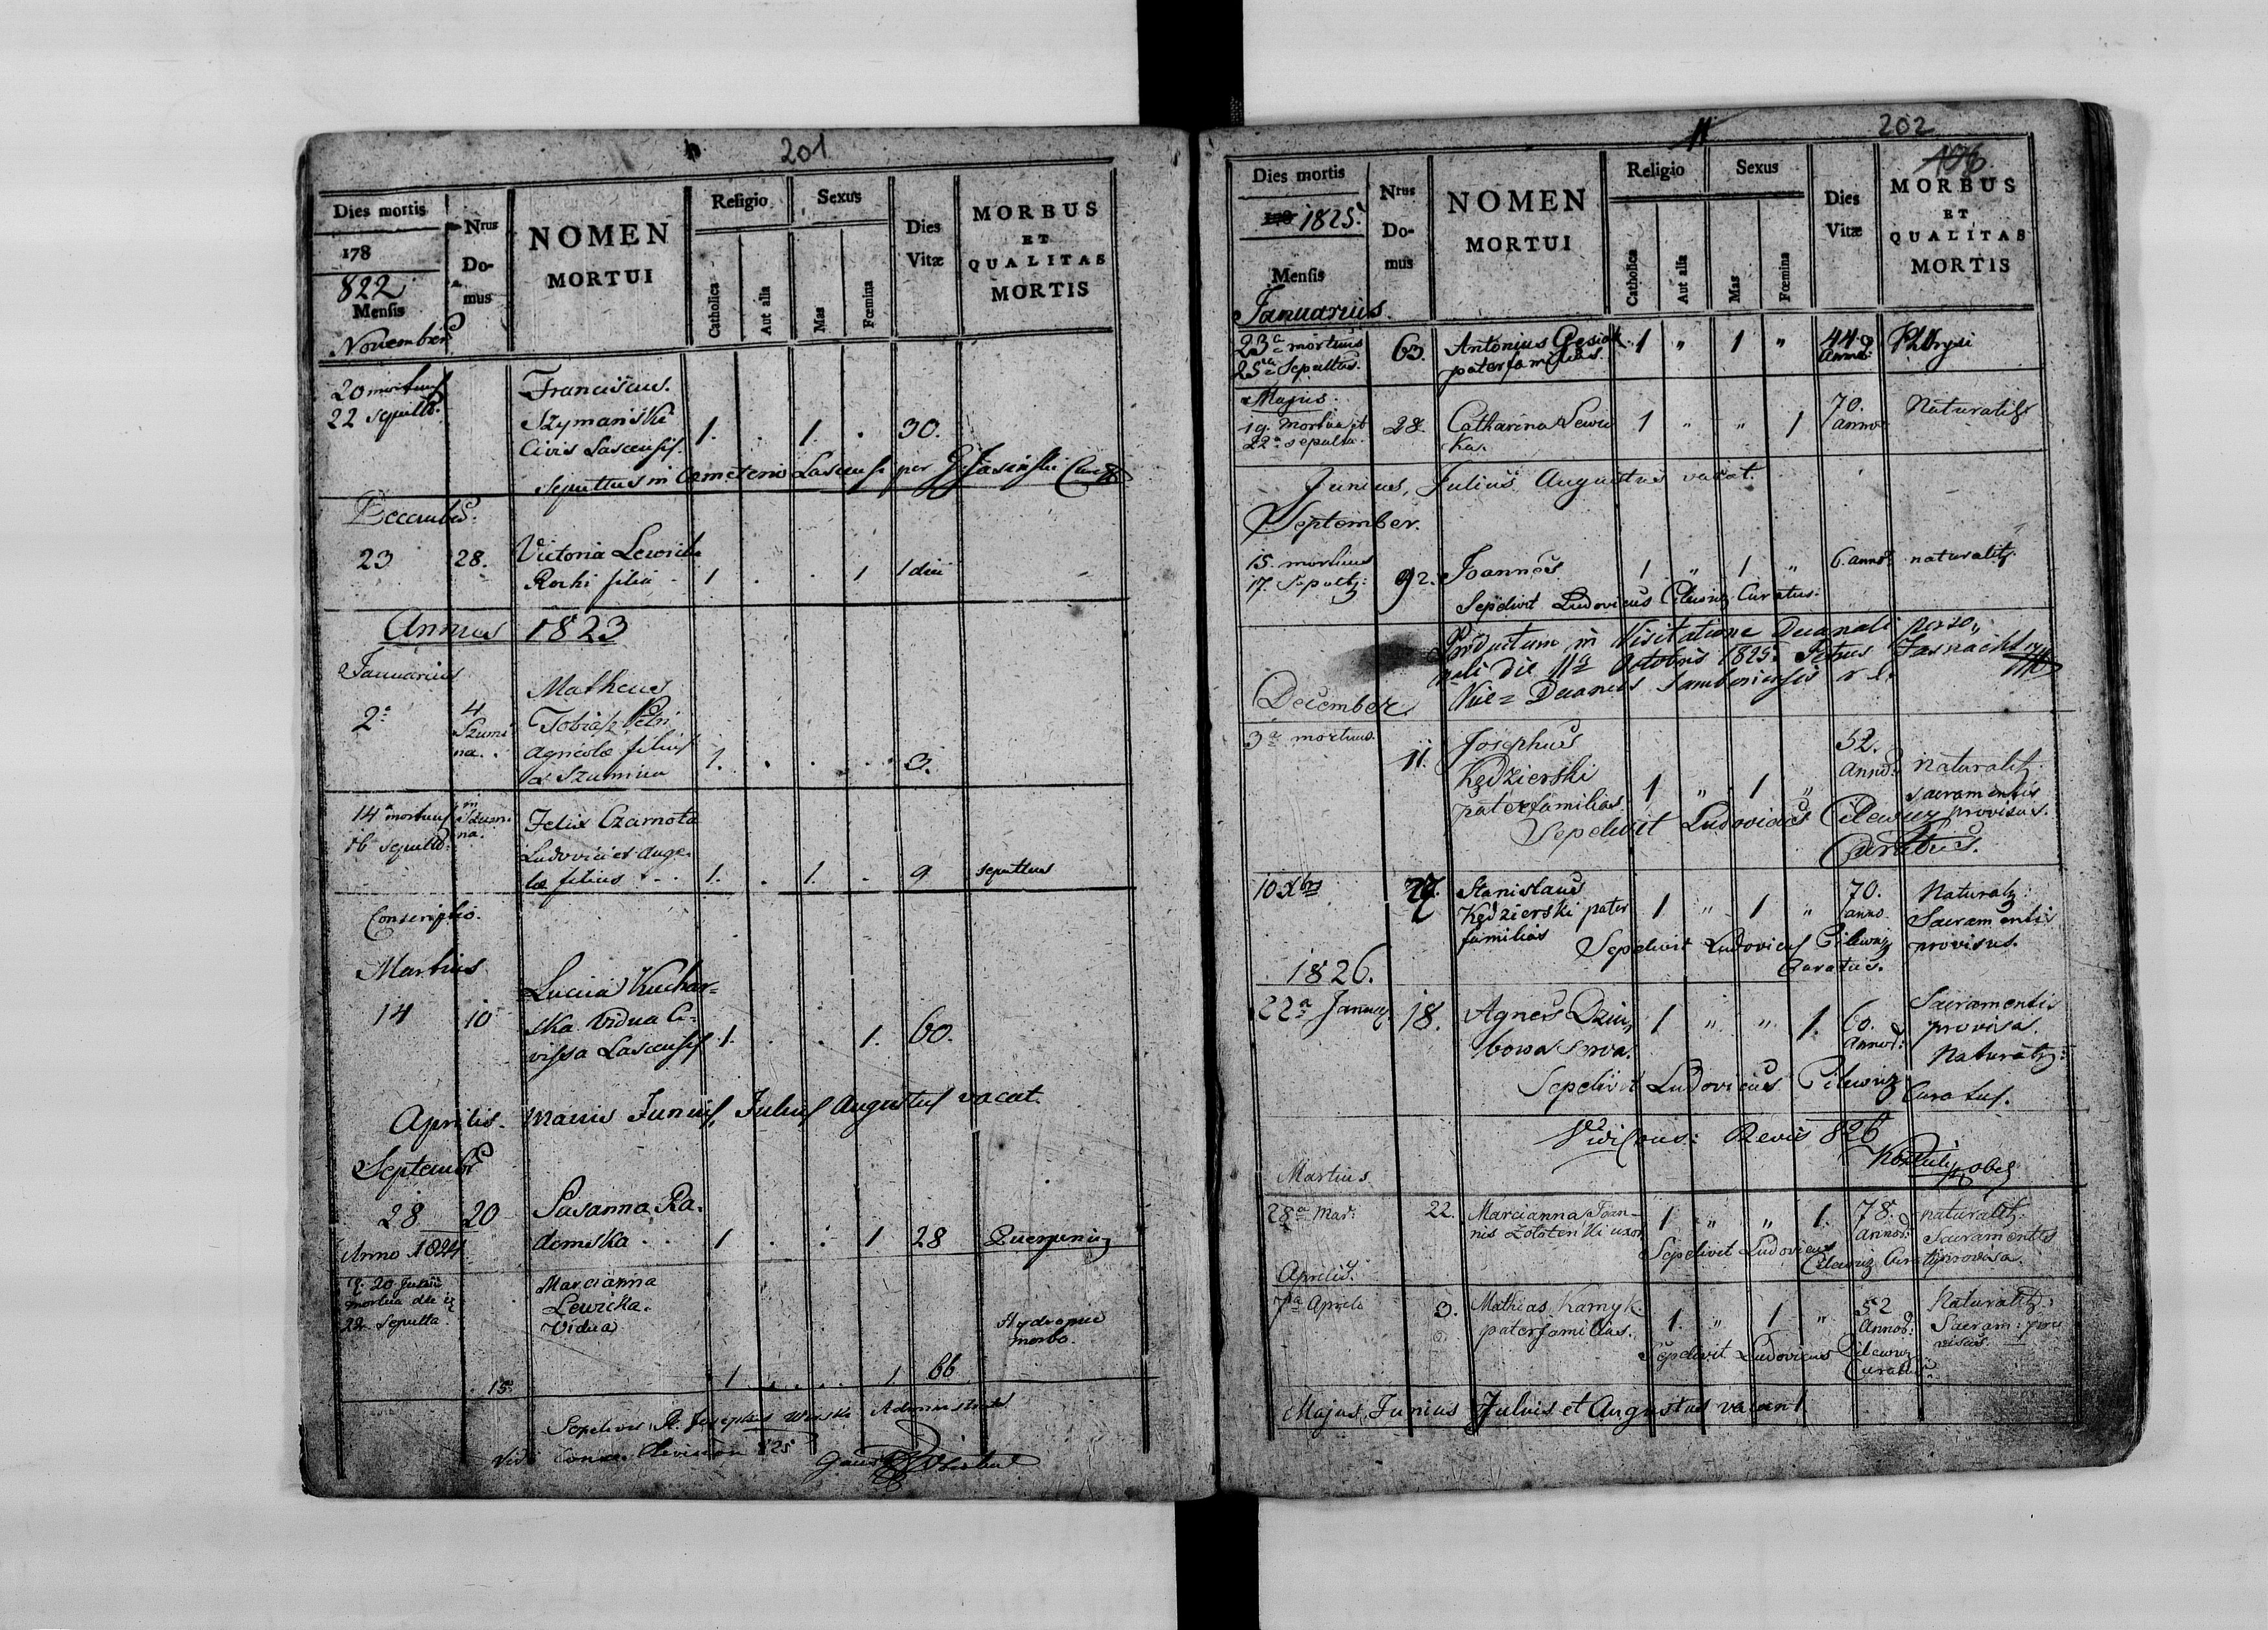 201
Dies mortis
178
822
Mensis
November
Nrus
Do-
mus
NOMEN
MORTUI
Religio
Catholica
Aut alia
Sexus
Mas
Fœmina
Dies
Vitæ
MORBUS
ET
QUALITAS
MORTIS
20 mortuus
22 sepult9
Franciscus
Szymański
Civis Lascensis
1. . 1. . 30.
Sepultus in Cemeterio Lascensi per Jasiński
December
23 28. Victoria Lewick
Rochi filia 1 . . 1 1 diei
Annus 1823
Januarius
2a 4
Szumi
na.
Matheus
Tobiasz Petri
agricolæ filius
a Szumina 1. . . . 3.
14a mortuus in Szumi
16 sepult9 na.
Felix Czarnota
Ludovici et Ange
læ filius 1. . 1. 9 sepultus
Conscriptio.
Martius
14 10
Lucia Kuchar=
ska Vidua Ci=
vissa Lascensis 1. . . 1. 60.
Aprilis. Maius Junius, Julius Augustus vacat.
September
28 20 Susanna Ra
domska 1 . . 1 28 Puerperio
Anno 1824
20 Julii
mortua die
22 Sepulta
Marcianna
Lewicka
Vidua
Hydropico
morbo
15. 1 . . 1. 66
Sepelivit Josephus Administrator
Vidi Revision 825
202
106
Dies mortis
178 1825.
Mensis
Januarius.
Nrus
Do-
mus
NOMEN
MORTUI
Religio
Catholica
Aut alia
Sexus
Mas
Fœmina
Dies
Vitæ
MORBUS
ET
QUALITAS
MORTIS
23a mortuus
25a Sepultus.
63. Antonius Gęsiak
paterfamilias. 1 " 1 " 44
Anno:
Majus.
19. Mortua
22a sepulta
28. Catharina Lewic
ka. 1 " " 1 70.
anno Naturalis
Junius, Julius Augustus vacat.
September.
15. mortuus
17. Sepult9: 92. Joannes 1 " 1 " 6. anno: naturalit9.
Sepelivit Ludovicus Pilewicz Curatus.
Productum in Visitatione Decanali perso„
nali die 11a Octobris 1825. Petrus Fasnacht
Vice= Decanus Samboriensis r. l.
December
3a mortuus 11. Josephus
Kędzierski
paterfamilias 1 " 1 " 52.
Anno: naturalit9
sacramentis
provisus.
Sepelivit Ludovicus Pilewicz
Curatus.
10 Xbris 27. Stanislaus
Kędzierski pater
familias 1 " 1 " 70.
anno. Naturalit9:
Sacramentis
provisus.
Sepelivit Ludovicus Pilewicz
Curatus.
1826.
22a January 18. Agnes Dziu„
bowa 1 " " 1. 60.
Anno: Sacramentis
provisa.
Naturalit9:
Sepelivit Ludovicus Pilewicz Curatus.
Vidimus: Revis 826
Martius
28a Mar: 22. Marcianna Joan=
nis Zołoteńki uxor 1 " " 1. 78.
Anno: naturalit9.
Sacramentis
provisa.
Sepelivit Ludovicus
Pilewicz Curat9
Aprilis.
7ma Aprilis 3. Mathias Kamyk
paterfamilias. 1. " 1 " 52
Anno: Naturalit9.
Sacram: pro
visus.
Sepelivit Ludovicus Pilewicz
Curatus.
Majus, Junius Julius et Augustus vacant